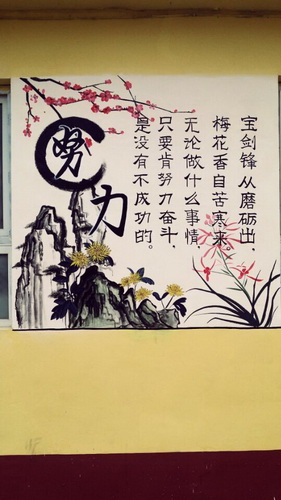 努力
宝剑锋从磨砺出,
梅花香自苦寒来。
无论做什么事情,
只要肯努力奋斗,
是没有不成功的。